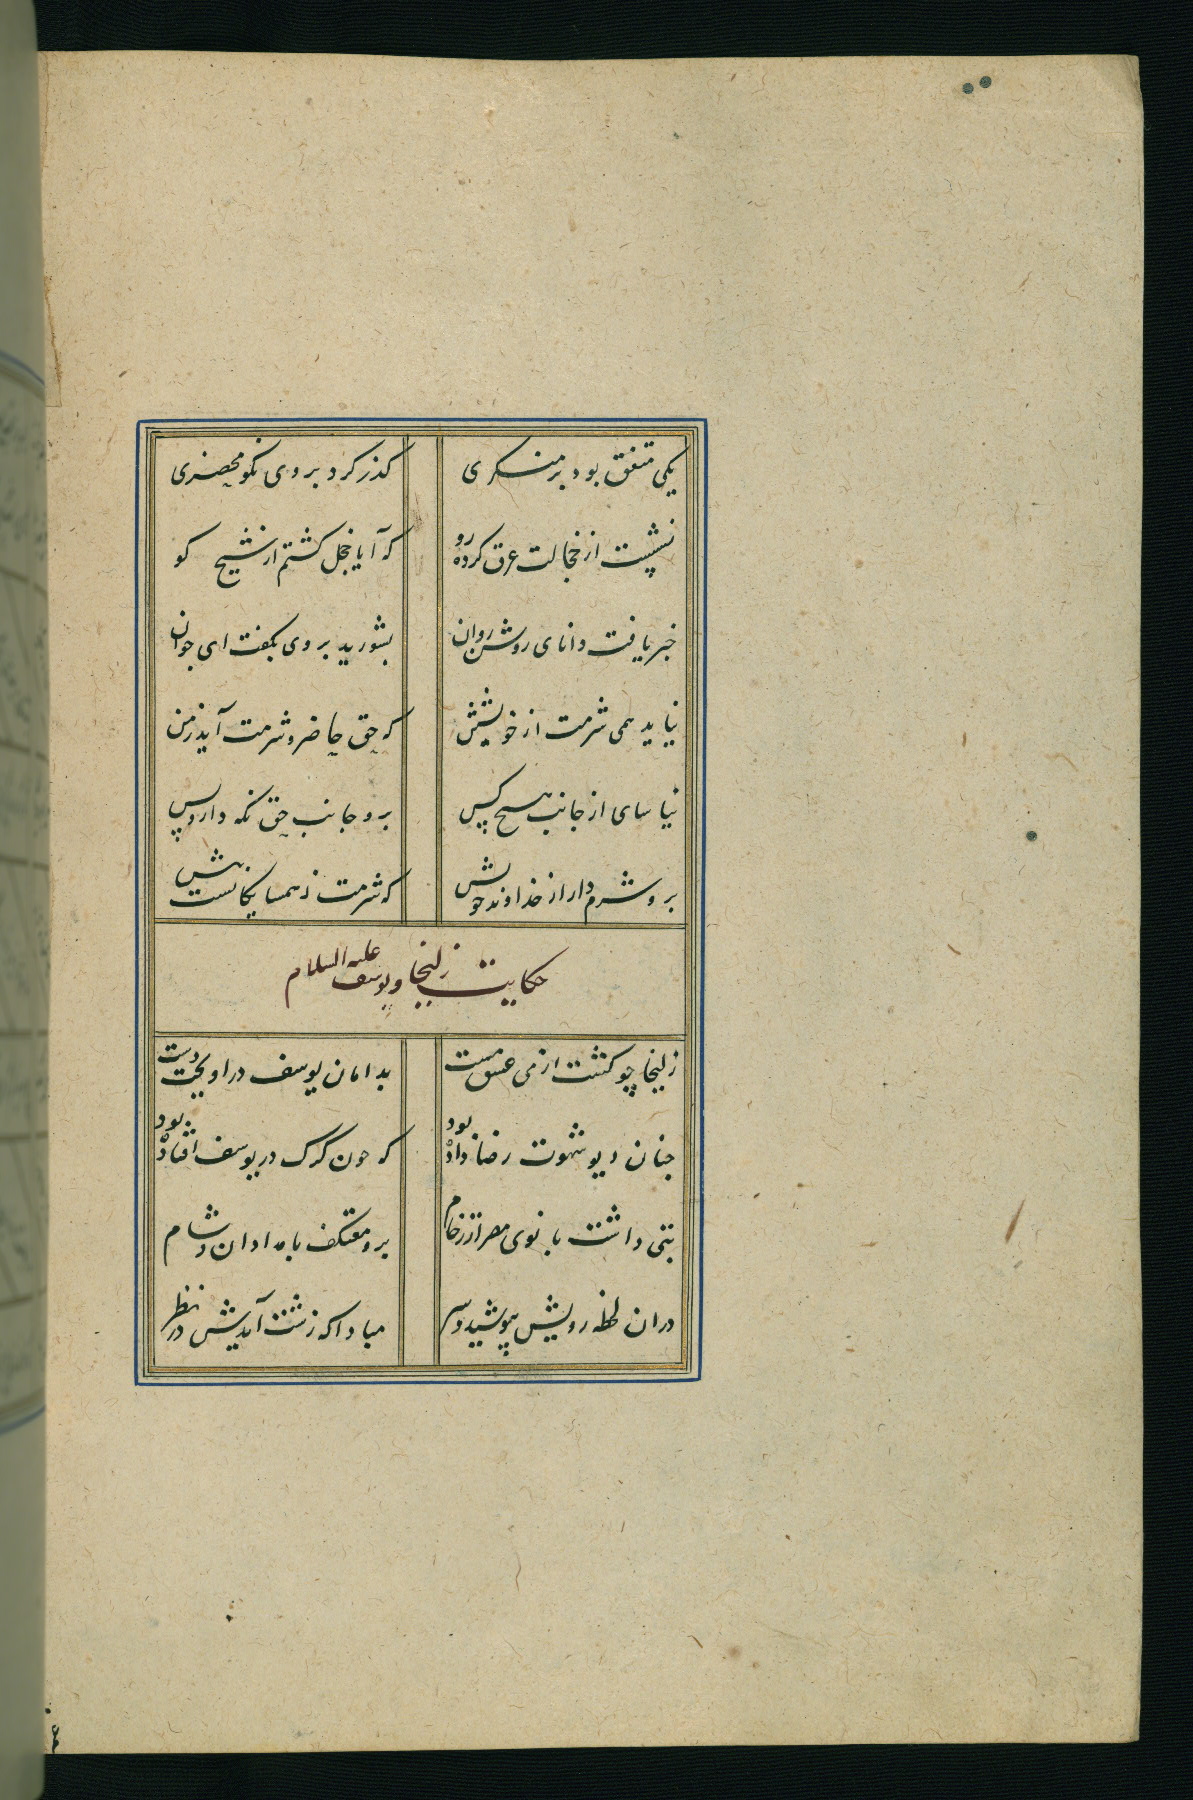 یکی متفق بود بر منکری
کذر کرد بر وی نکو محضری
نشست از خجالت عرق کرده رو
که آیا خجل کشتم از شیخ کو
خبر یافت دانای روشن روان
بشورید بر وی بکفت ای جوان
نیاید همی شرمت از خویشتن
که حق حاضر و شرمت آید ز من
نیاسای از جانب هیچ کس
برو جانب حق نکه دار و بس
برو شرم دار از خداوند خویش
که شرمت ز همسایکانست بیش
حکایت زلیخا و یوسف علیه السلام
زلیخا چو کشت از می عشق مست
بدامان یوسف در اویخت دست
جنان دیو شهوت رضا داده بود
که جون کرک در یوسف افتاده بود
بتی داشت بانوی مصر از رخام
برو معتکف بامدادان و شام
دران لحظه رویش بپوشید و سر
مبادا که زشت آیدش در نظر